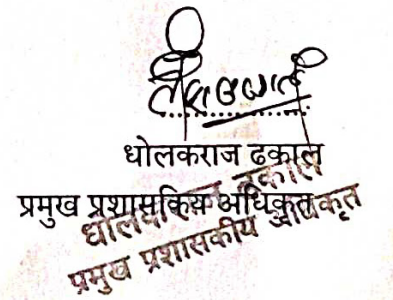 धोलकराज ढकाल
प्रमुख प्रशासकिय अधिकृत
धोलकराज ढकाल
प्रमुख प्रशासकीय अधिकृत